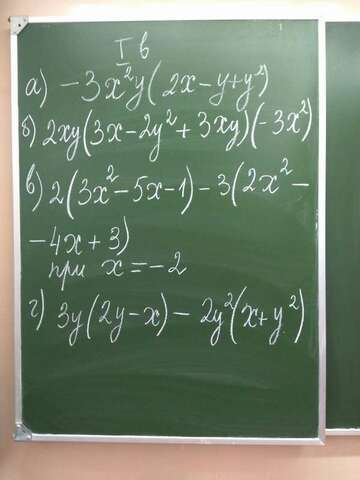 I в
а) -3x²y(2x-y+y²)
б) 2xy(3x-2y²+3xy)(-3x²)
в) 2(3x²-5x-1)-3(2x²-
-4x+3)
при x=-2
г) 3y(2y-x)-2y²(x+y²)